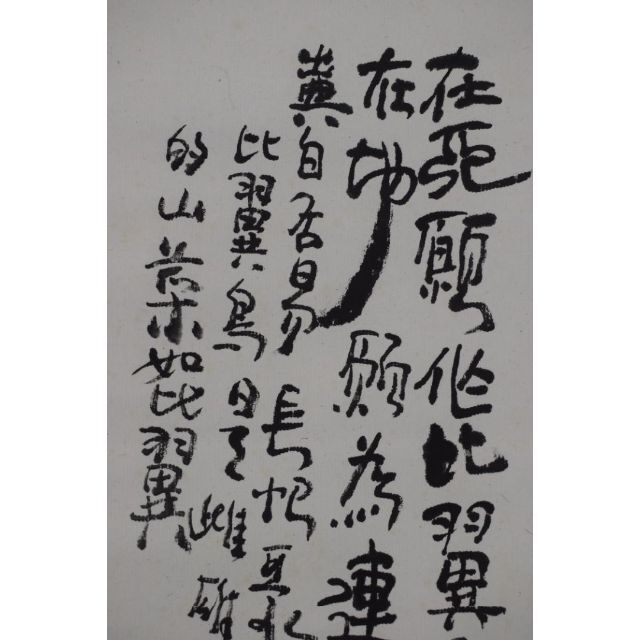 在天願作比翼
在地願為連
白居易長恨
比翼鳥是雌雄
的山葉如比翼